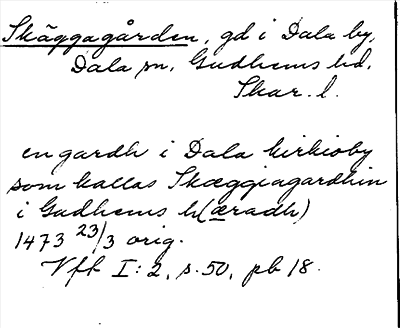 Skäggagården, gd i Dala by,
Dala sn, Gudhems hd,
Skar. l.
en gardh i Dala kirkioby
som kallas Skæggiagardhin
i Gudhems h(æradh)
1473 23/3 orig.
Vff I:2, s. 50, pb 18.